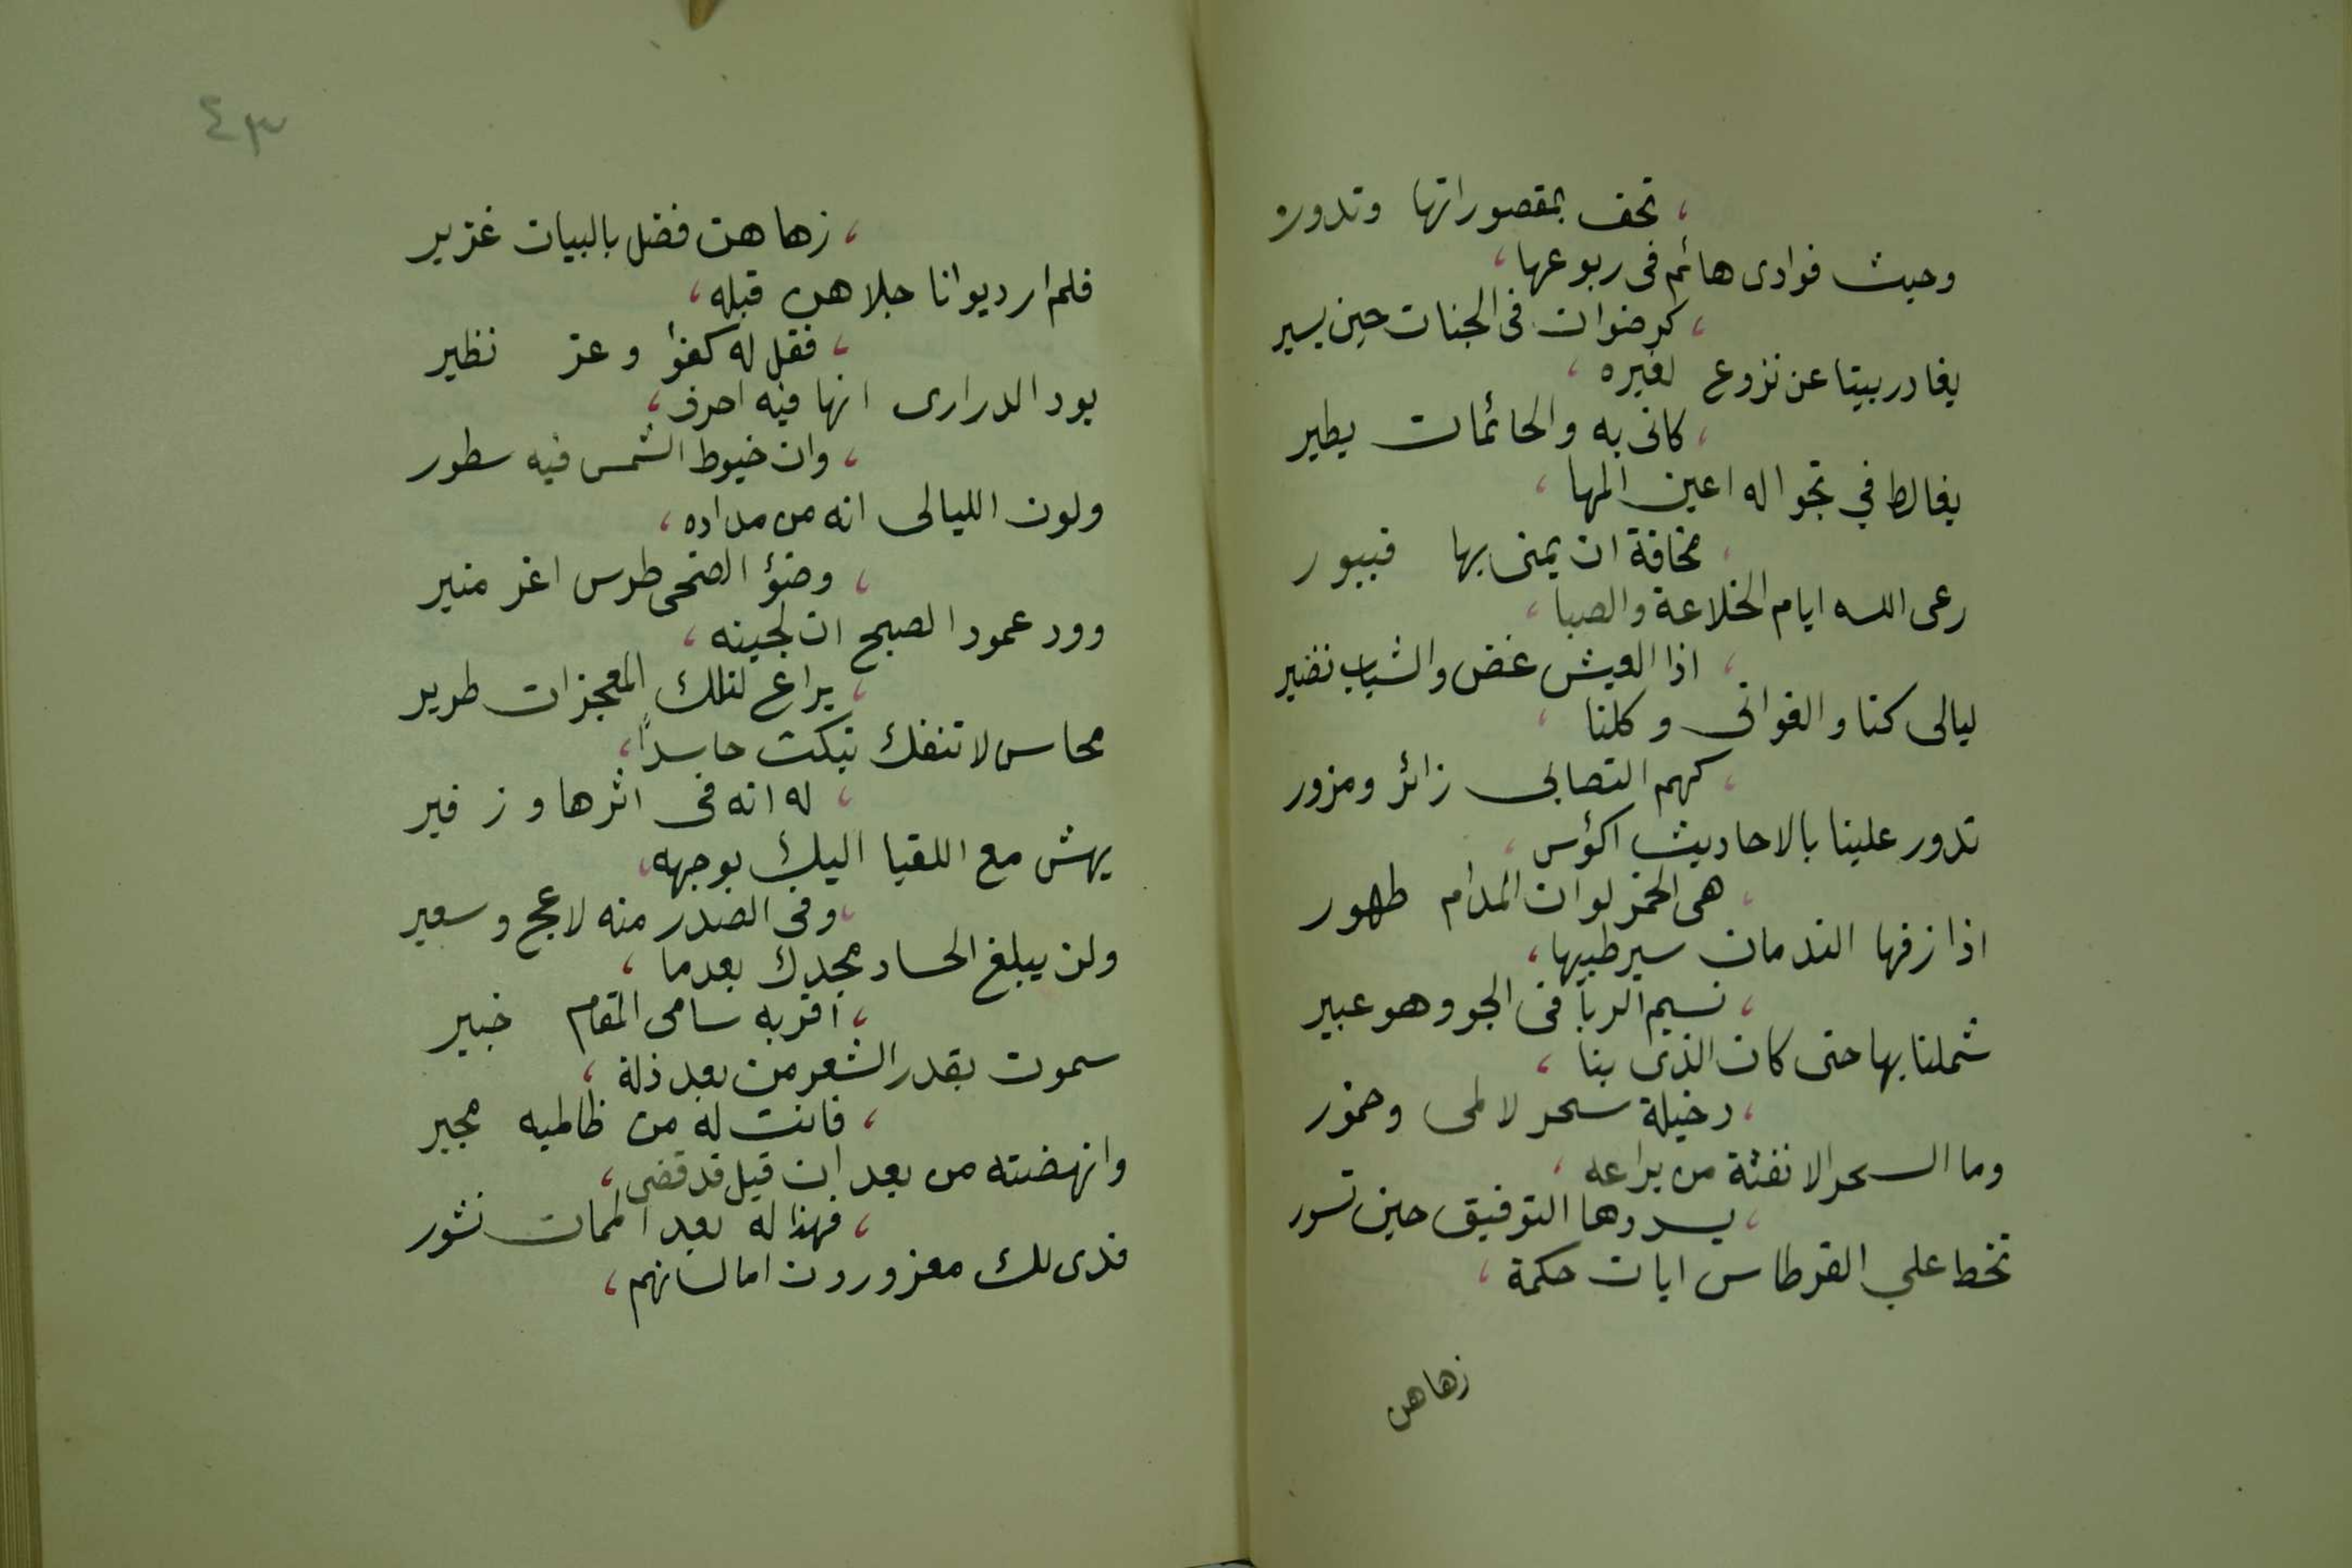 ، تحف بمقصوراتها وتدور
وحيث فوادى هائم فى ربوعها ،
، كرضوان فى الجنات حين يسير
يغادر بيتا عن نزوع لغيره ،
، كانى به والحائمات يطير
يغالط في تجواله اعين المها ،
، مخافة ان يمنى بها فيبور
رعى الله ايام الخلاعة والصبا ،
، اذا العيش غض والشباب نضير
ليالى كنا والغوانى وكلنا ،
، كهم التصابى زائر ومزور
تدور علينا بالاحاديث اكؤس ،
، هى الخمر لوان المدام طهور
اذا زفها الندمان سير طيبها ،
، نسيم الربا فى الجو وهو عبير
شملنا بها حتى كان الذى بنا ،
، دخيلة سحر لا لمى وخمور
وما السحر الا نفثة من يراعه ،
، يسددها التوفيق حين تسور
تخط علي القرطاس ايات حكمة ،
زهاهن
٤٣
، زهاهن فضل بالبيان غزير
فلم ار ديوانا جلاهن قبله ،
، فقل له كفؤا وعز نظير
يود الدرارى انها فيه احرف ،
، وان خيوط الشمس فيه سطور
ولون الليالى انه من مداده ،
، وضؤ الضحى طرس اغر منير
وود عمود الصبح ان لجينه ،
، يراع لتلك المعجزات طرير
محاسن لا تنفك تبكت حاسداً ،
، له انه فى اثرها وزفير
يهش مع اللقيا اليك بوجهه ،
، وفى الصدر منه لاعج وسعير
ولن يبلغ الحساد مجدك بعدما ،
، اقر به سامى المقام خبير
سموت بقدر الشعر من بعد ذلة ،
، فانت له من ظالميه مجير
وانهضته من بعد ان قيل قد قضى ،
، فهذا له بعد الممات نشور
فدى لك مغرورون اما لسانهم ،